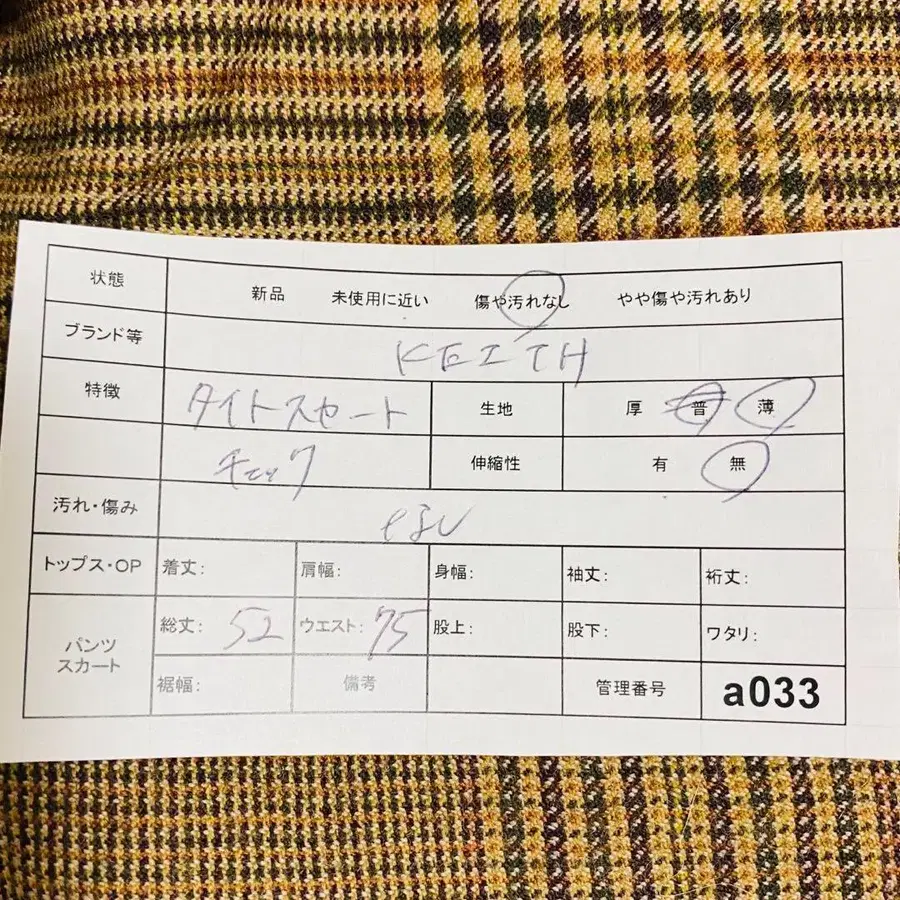 状態 新品 未使用に近い 傷や汚れなし やや傷や汚れあり
ブランド等 KEITH
特徴 タイトスカート 生地 厚 普 薄
チェック 伸縮性 有 無
汚れ・傷み なし
トップス・OP 着丈: 肩幅: 身幅: 袖丈: 裄丈:
パンツ スカート 総丈: 52 ウエスト: 75 股上: 股下: ワタリ:
裾幅: 備考 管理番号 a033